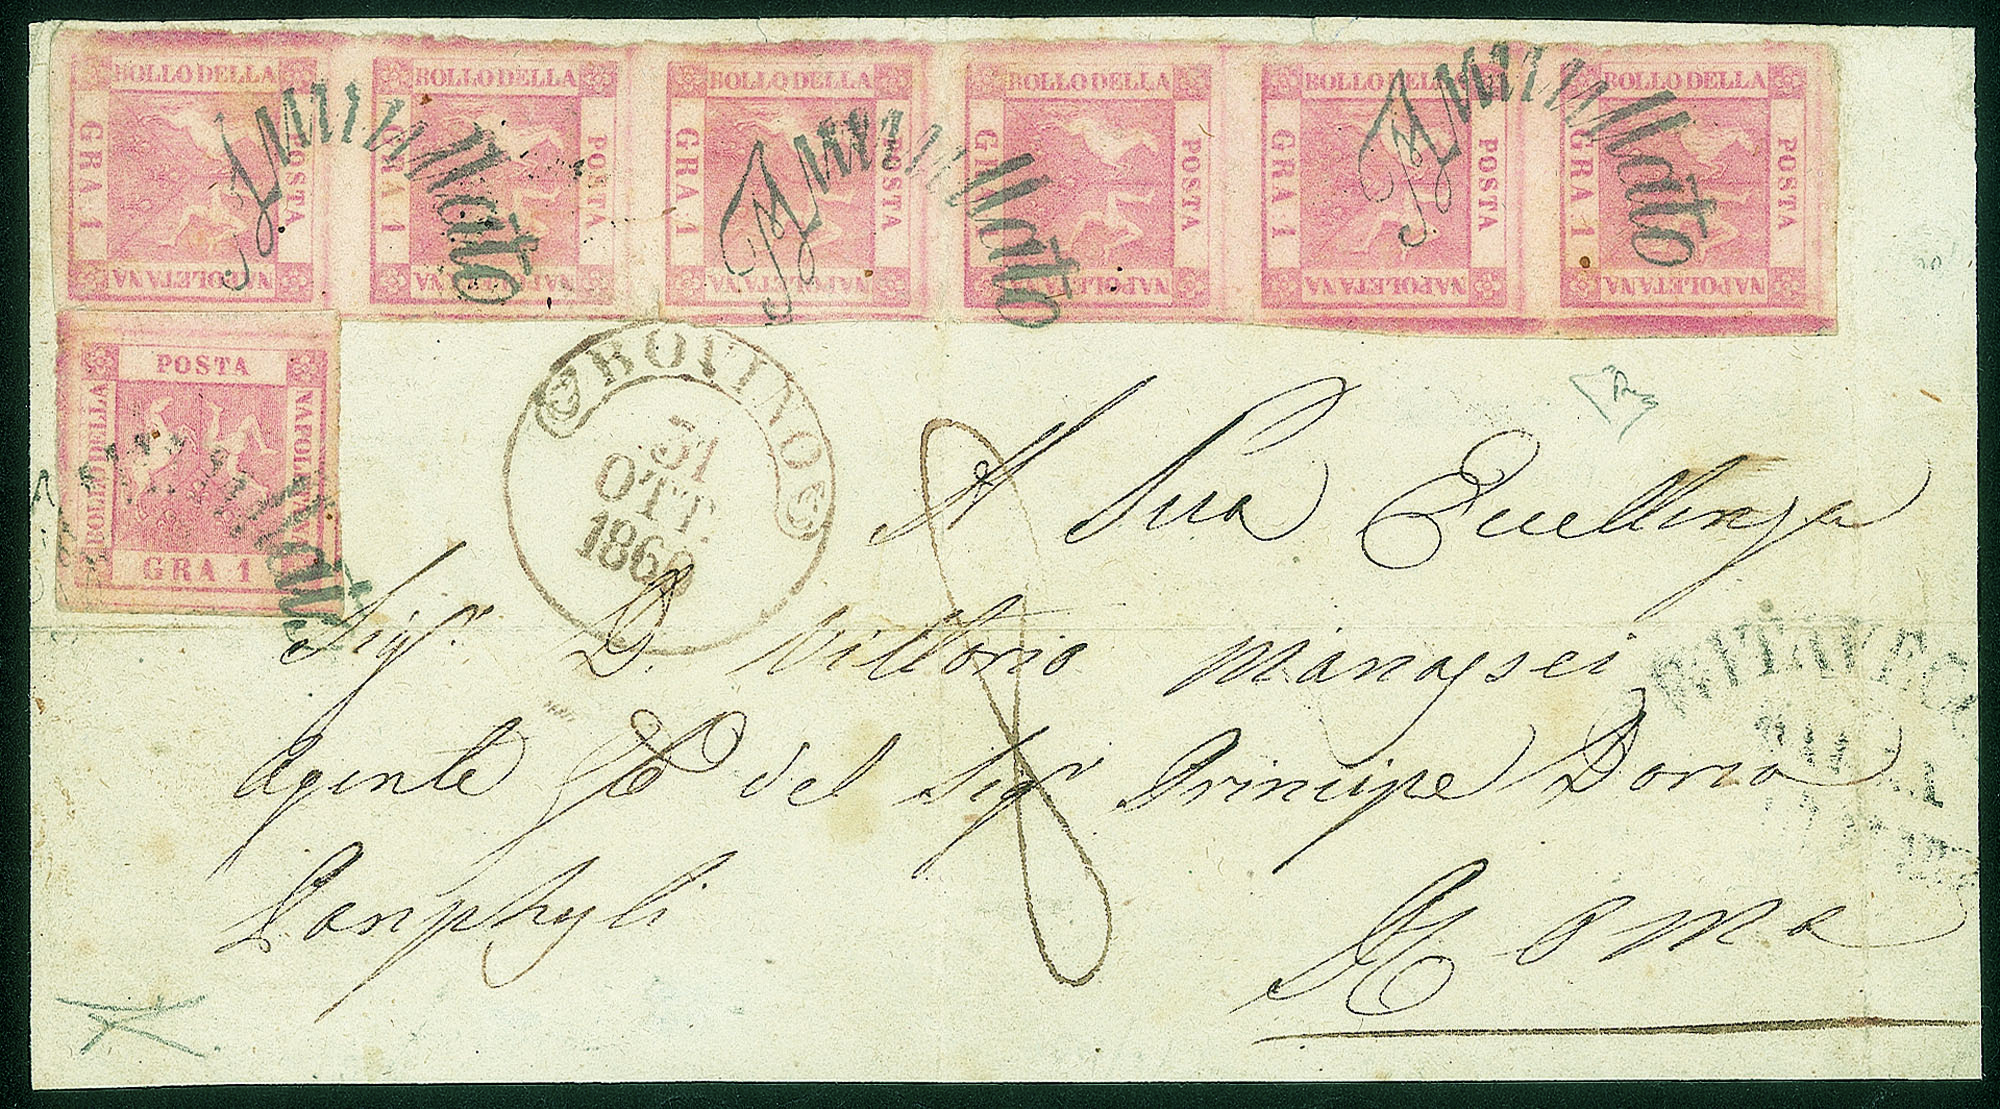 BOLLO DELLA POSTA NAPOLETANA GRA 1
BOLLO DELLA POSTA NAPOLETANA GRA 1
BOLLO DELLA POSTA NAPOLETANA GRA 1
BOLLO DELLA POSTA NAPOLETANA GRA 1
BOLLO DELLA POSTA NAPOLETANA GRA 1
BOLLO DELLA POSTA NAPOLETANA GRA 1
Annullato
Annullato
Annullato
BOLLO DELLA POSTA NAPOLETANA GRA 1
Annullato
BOVINO
31
OTT.
1860
8
A Sua Eccellenza
Sigr. D. Vittorio
Agente Gle del Sigr Principe Doria
Panphyli
Roma